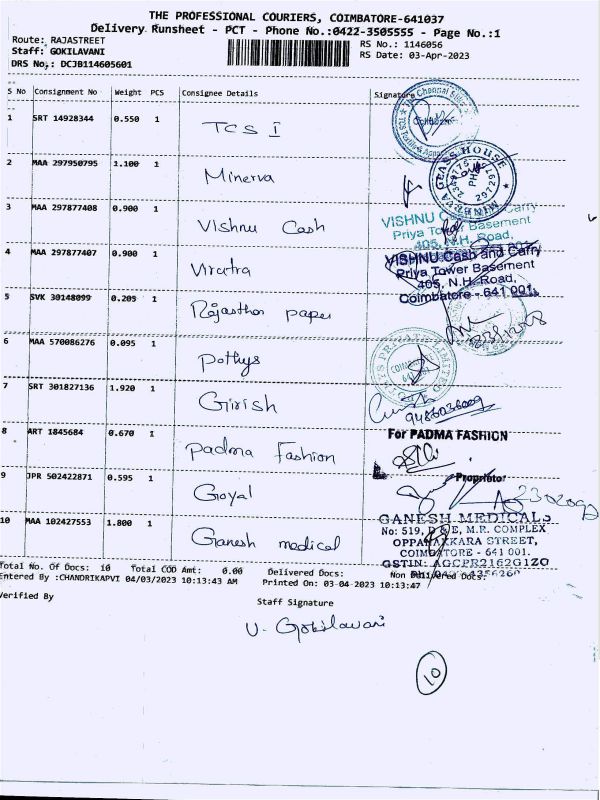 THE PROFESSIONAL COURIERS, COIMBATORE-641037
Delivery Runsheet - PCT - Phone No.:0422-3505555 - Page No.:1
Route: RAJASTREET
RS No.: 1146056
Staff: GOKILAVANI
RS Date: 03-Apr-2023
DRS No.: DCJB114605601
S No Consignment No Weight PCS Consignee Details Signature
1 SRT 14928344 0.550 1 TCS I
2 MAA 297950795 1.100 1 Minerva
MINERVA GLASS HOUSE
3 MAA 297877408 0.900 1 Vishnu Cash
VISHNU Cash and Carry
Priya Tower Basement
405, N.H. Road,
4 MAA 297877407 0.900 1
VISHNU Cash and Carry
Priya Tower Basement
405, N.H. Road,
Coimbatore - 641 001.
5 SVK 30148099 0.205 1 Rajasthan paper
6 MAA 570086276 0.095 1 Pothys
7 SRT 301827136 1.920 1 Girish
9486036009
8 ART 1845684 0.670 1 Padma Fashion
For PADMA FASHION
Proprietor
9 JPR 502422871 0.595 1 Goyal
10 MAA 102427553 1.800 1 Ganesh medical
GANESH MEDICALS
No: 519, D & E, M.R. COMPLEX
OPPANAKKARA STREET,
COIMBATORE - 641 001.
GSTIN: AGCPR2162G1ZO
Total No. Of Docs: 10 Total COD Amt: 0.00 Delivered Docs: Non Delivered Docs:
Entered By :CHANDRIKAPVI 04/03/2023 10:13:43 AM Printed On: 03-04-2023 10:13:47
Verified By
Staff Signature
V. Gokilavani
10